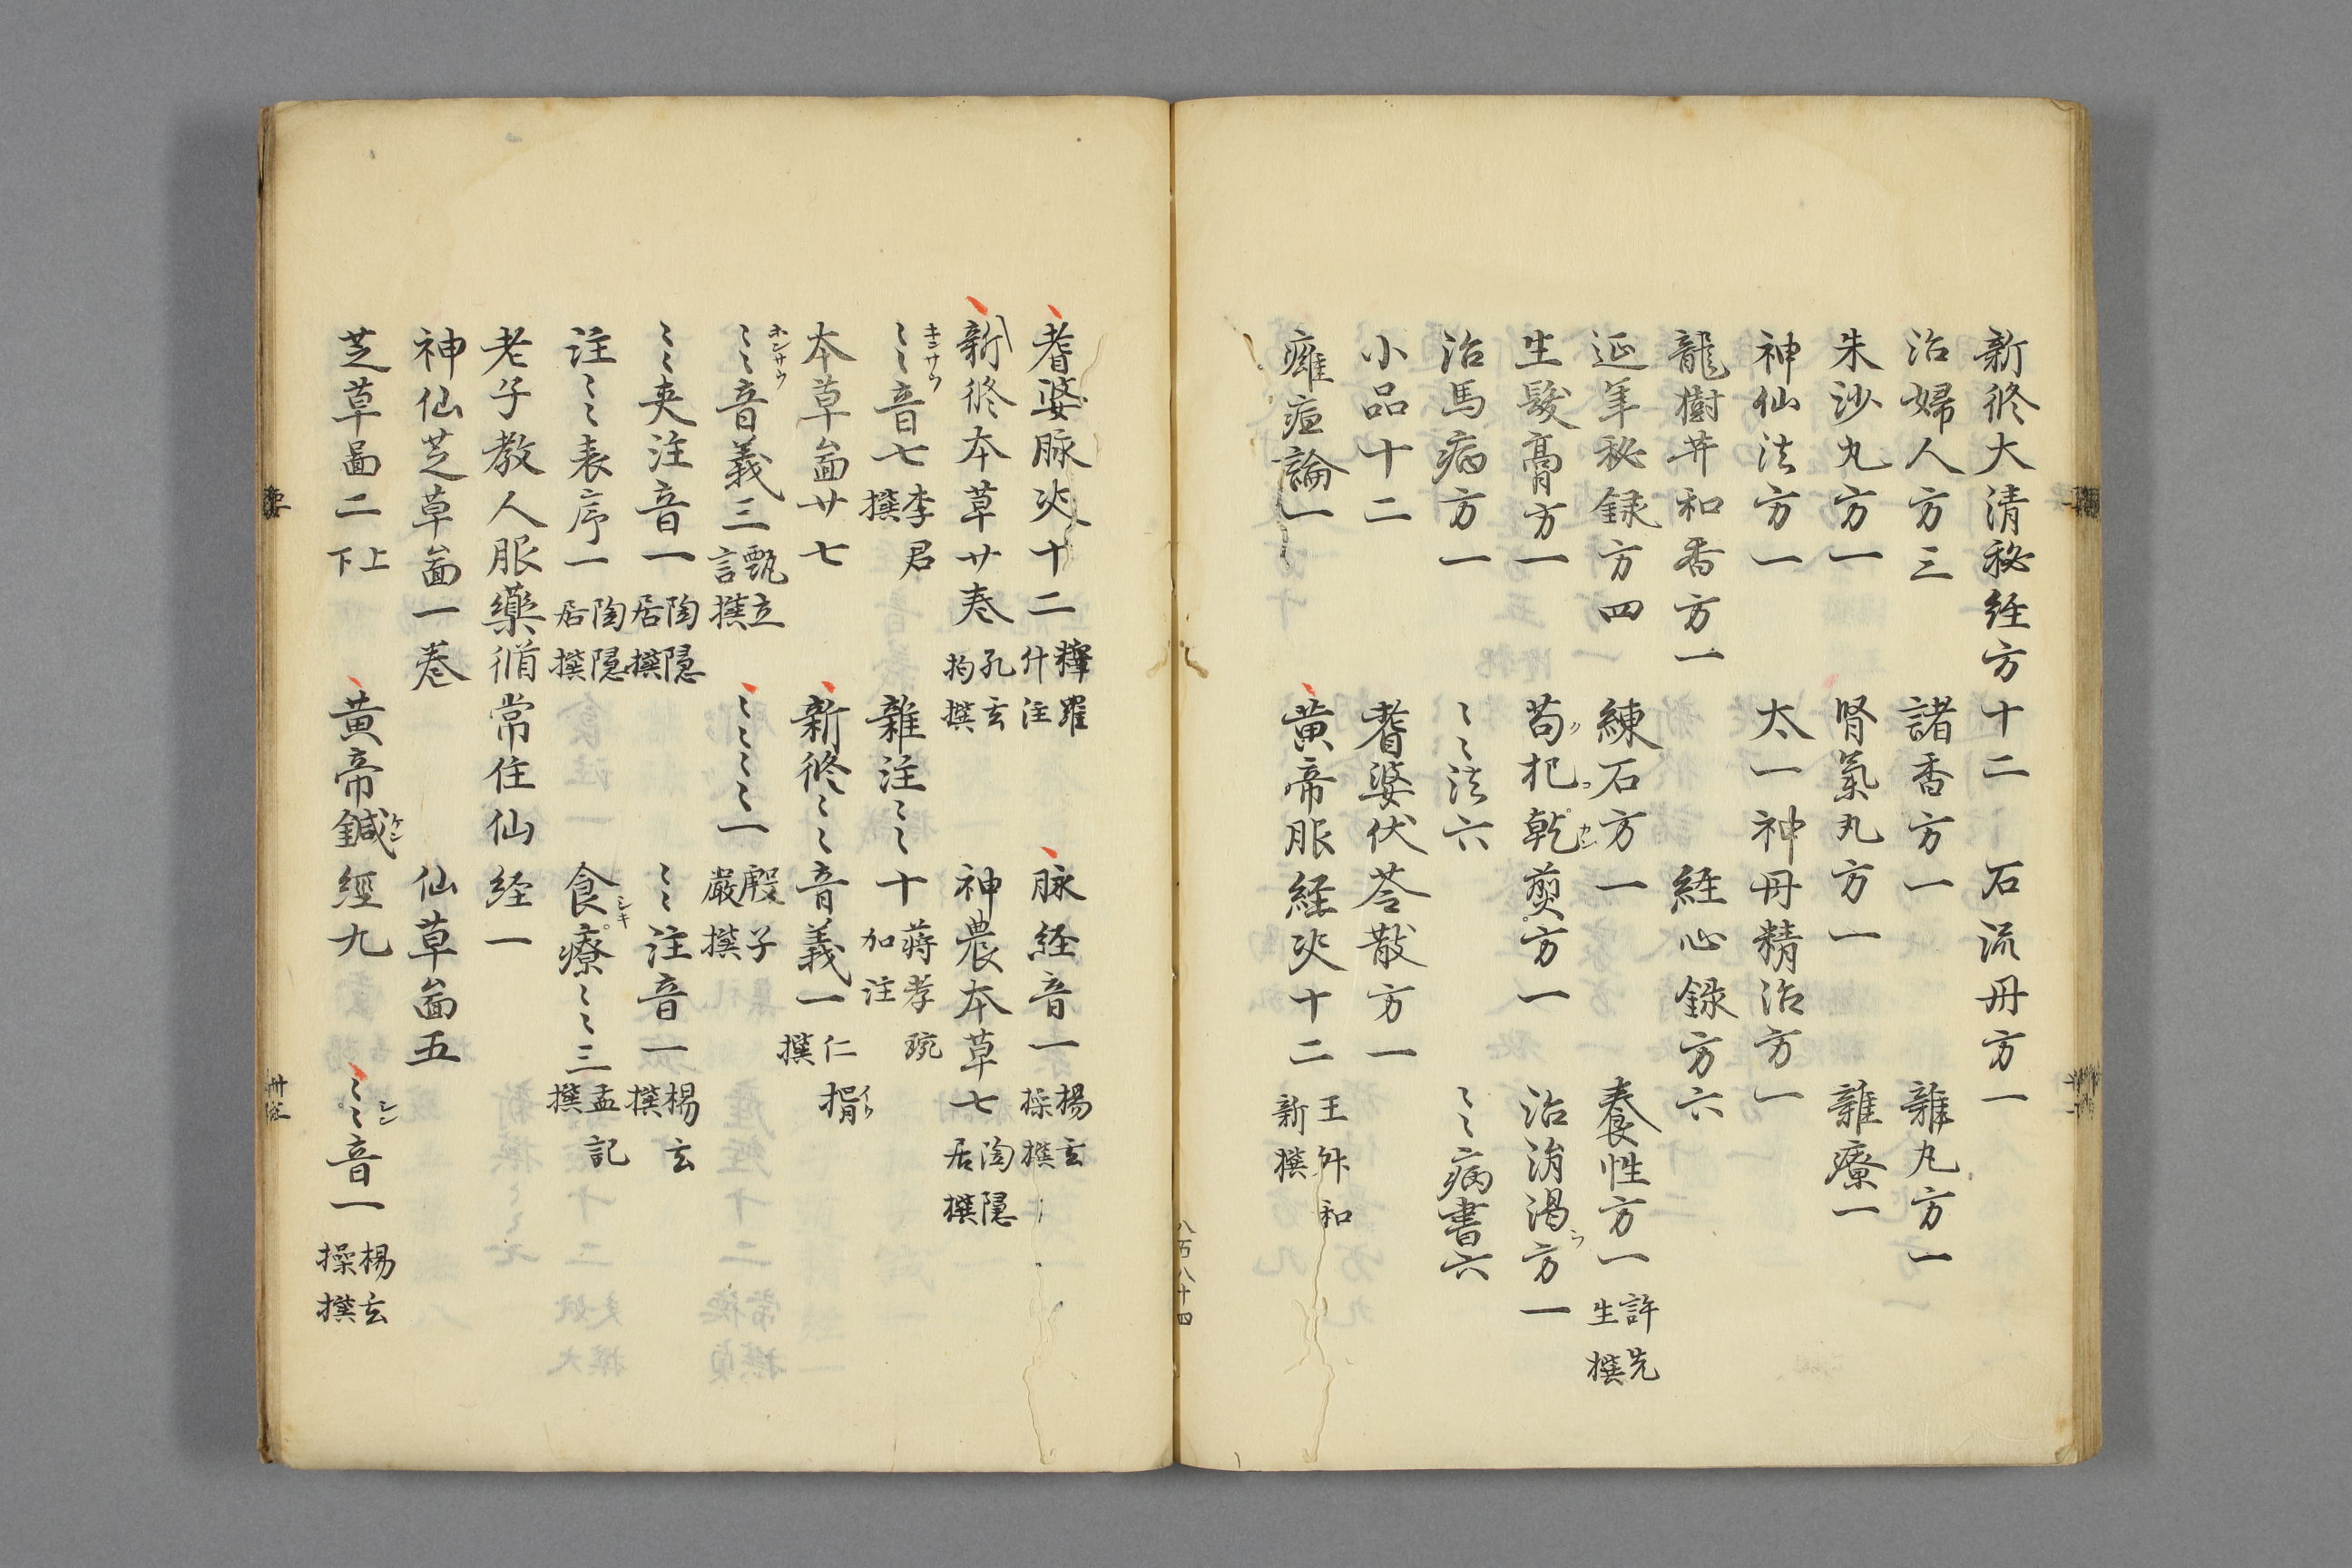 新修大清秘経方十二　石流丹方一
治婦人方三　諸香方一　雜丸方一
朱沙丸方一　腎氣丸方一　雜療一
神仙法方一　太一神丹精治方一
龍樹并和香方一　経心録方六
延年秘録方四　練石方一　養性方一 許先生撰
生髮膏方一　苟杞乾煎方一　治消渇方一
治馬病方一　〻〻法六　〻〻病書六
小品十二　耆婆伏苓散方一
癰疽論一　黄帝脈経决十二 王外和新撰
八百八十四
耆婆脉决十二 釋羅什注　脉経音一 楊玄操撰
新修本草廿巻 孔玄均撰　神農本草七 陶隠居撰
〻〻音七 李君撰　雜注〻〻十 蒋孝琬加注
本草啚廿七　新修〻〻音義一 仁揟撰
〻〻音義三 甄立言撰　〻〻〻〻一 殷子嚴撰
〻〻夾注音一 陶隠居撰　〻〻注音一 楊玄撰
注〻〻表序一 陶隠居撰　食療〻〻三 孟記撰
老子教人服藥脩常住仙経一
神仙芝草啚一巻　仙草啚五
芝草啚二 上下　黄帝鍼經九　〻〻音一 楊玄操撰